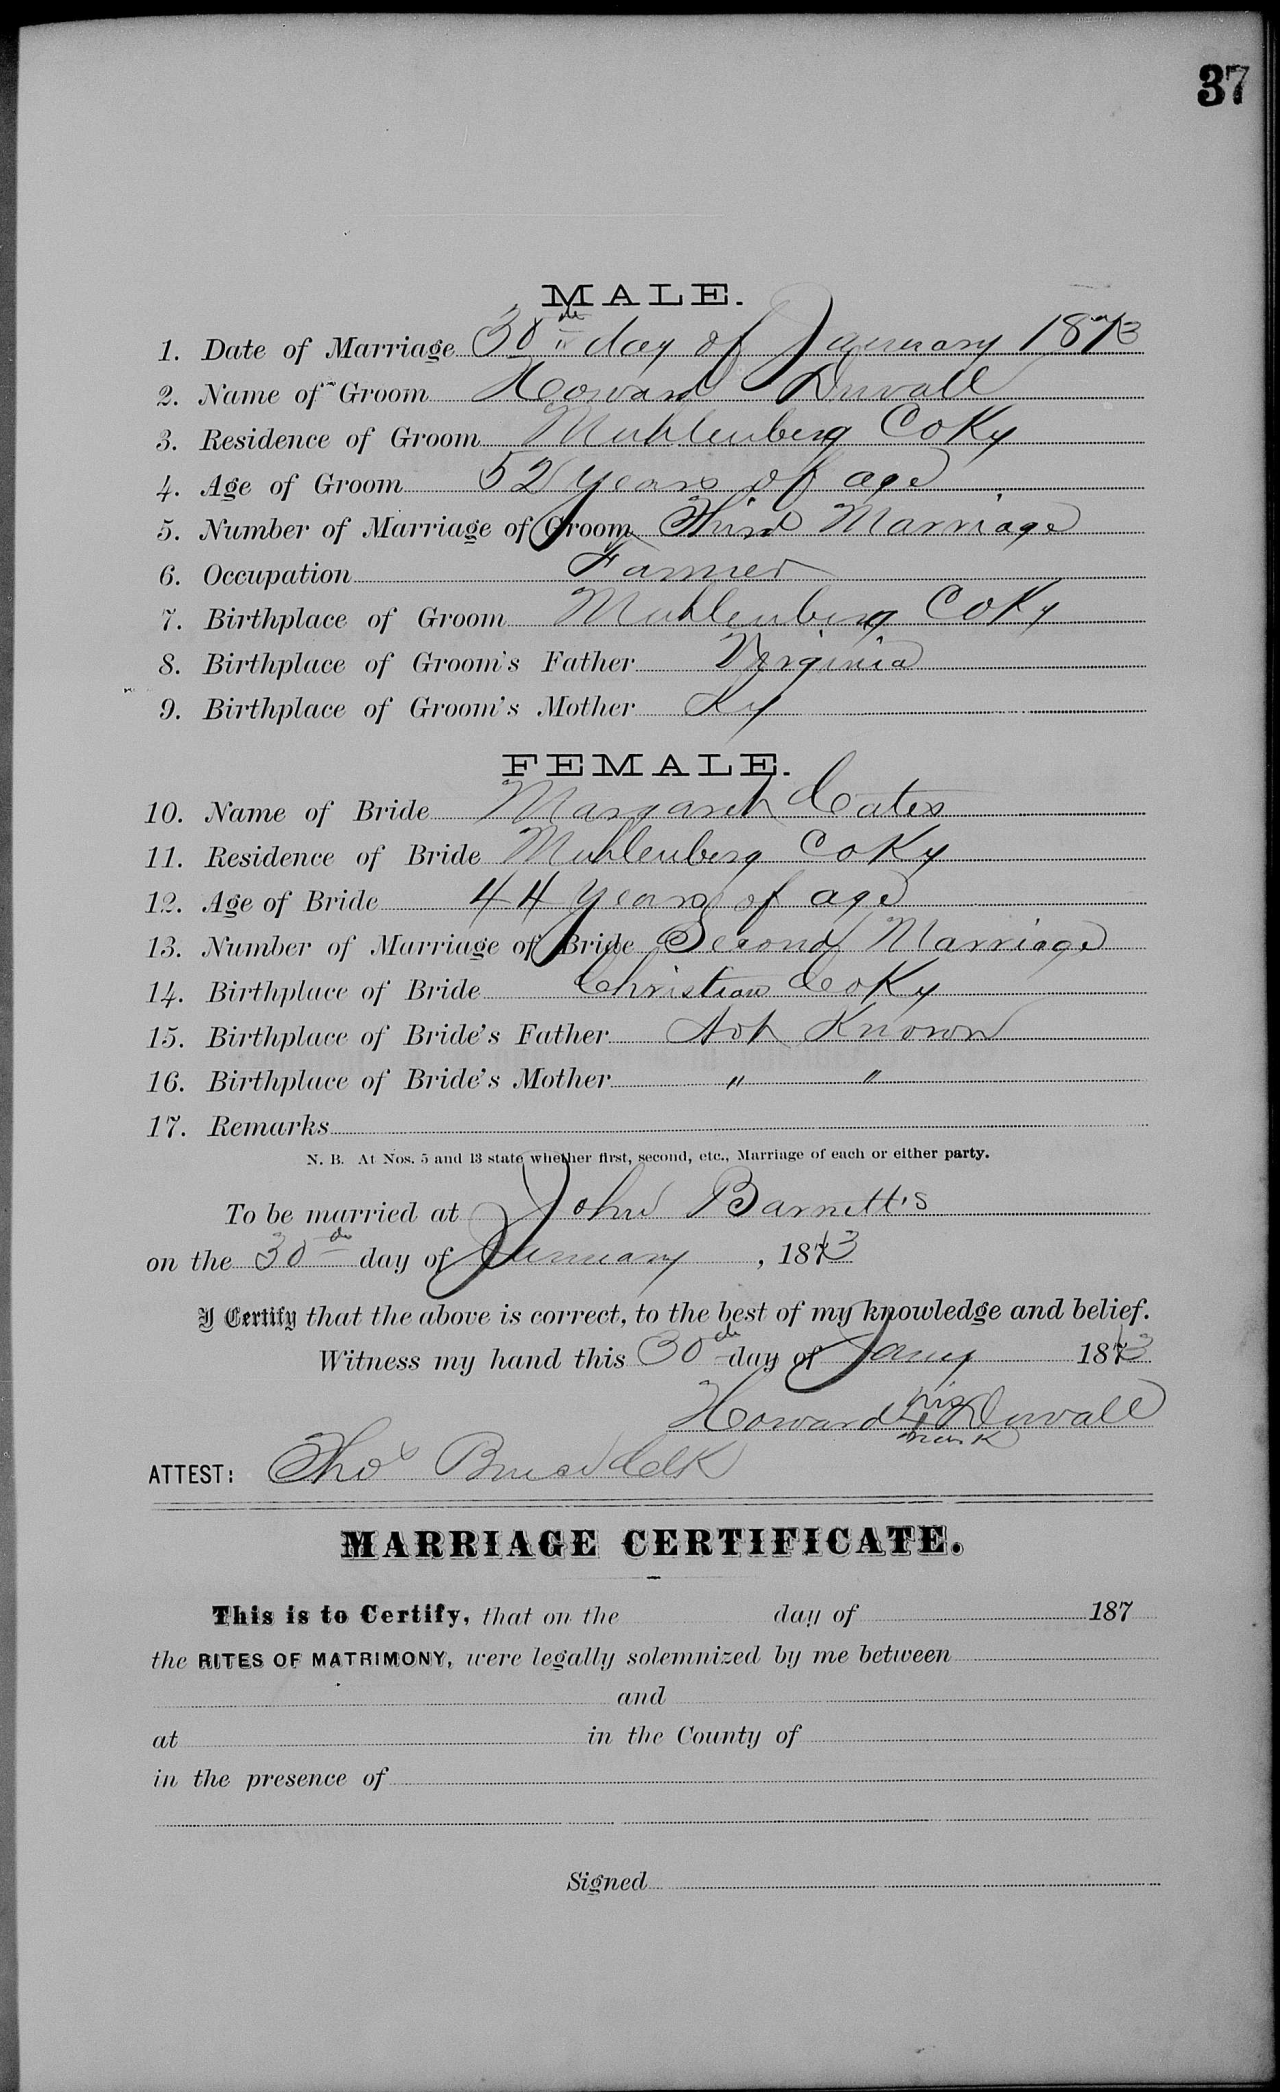 37
MALE.
1. Date of Marriage 30th day of January 1873
2. Name of Groom Howard Duvall
3. Residence of Groom Muhlenberg Co Ky
4. Age of Groom 52 years of age
5. Number of Marriage of Groom Third Marriage
6. Occupation Farmer
7. Birthplace of Groom Muhlenberg Co Ky
8. Birthplace of Groom's Father Virginia
9. Birthplace of Groom's Mother Ky
FEMALE.
10. Name of Bride Margaret Cates
11. Residence of Bride Muhlenberg Co Ky
12. Age of Bride 44 years of age
13. Number of Marriage of Bride Second Marriage
14. Birthplace of Bride Christian Co Ky
15. Birthplace of Bride's Father Not Known
16. Birthplace of Bride's Mother " "
17. Remarks
N. B. At Nos. 5 and 13 state whether first, second, etc., Marriage of each or either party.
To be married at John Barnett's
on the 30th day of January, 1873
I Certify that the above is correct, to the best of my knowledge and belief.
Witness my hand this 30th day of Jany 1873
Howard his mark Duvall
ATTEST: Thos Bruce Clk
MARRIAGE CERTIFICATE.
This is to Certify, that on the day of 187
the RITES OF MATRIMONY, were legally solemnized by me between
and
at in the County of
in the presence of
Signed